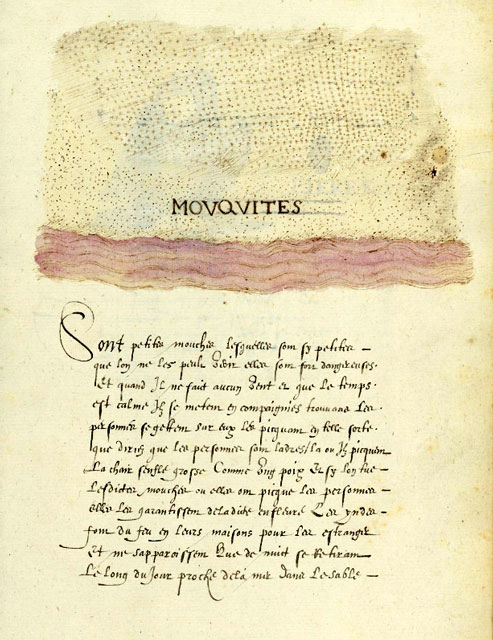 MOVQVITES
Sont petites mouches lesquelles sont sy petites
que lon ne les peult veoir elles sont fort dangereuses
Et quand Il ne fait aucun vent et que le temps
est calme Ilz se metent en compaignies trouvans les
personnes se gettent sur eux les picquant en telle sorte
que diriez que les personnes sont ladres / la ou Ilz picquent
La chair senfle grosse Comme ung poix Et sy lon tue
Lesdictes mouches ou elles ont picque les personnes
elles les garantissent de ladicte enfleure Les yndes
font du feu en leurs maisons pour les estranger
Et ne sapparoissent que de nuict se Retirant
Le long du Jour proche de la mer dans le sable